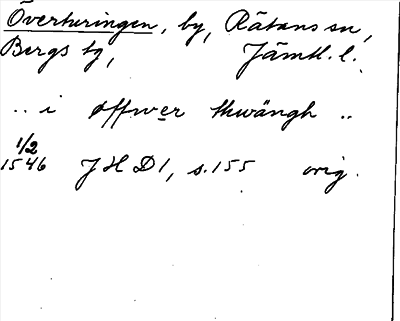 Överturingen, by, Rätans sn,
Bergs tg, Jämtl. l.
.. i offwer thwängh ..
1/2
1546 JHD 1, s. 155 orig.